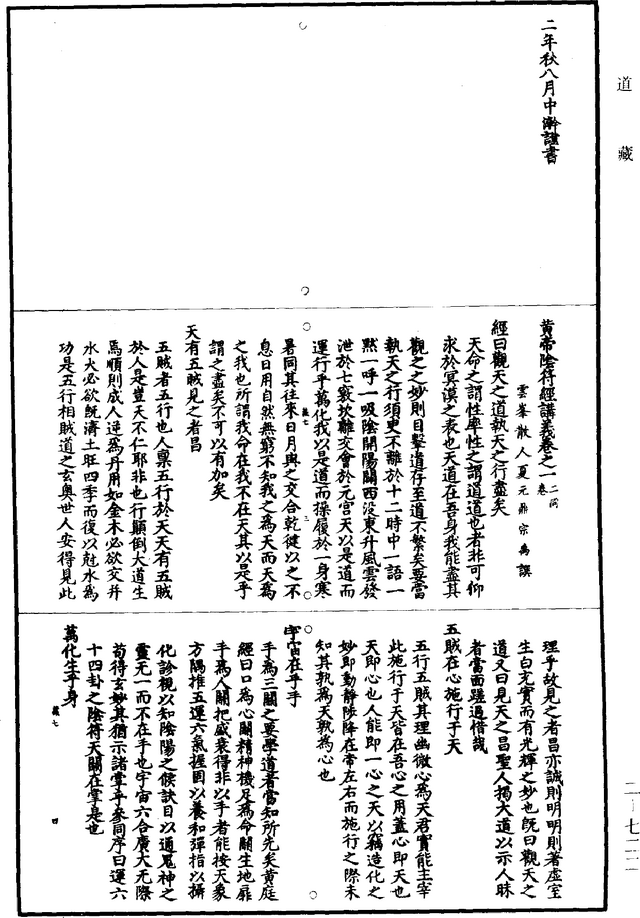 道藏
二年秋八月中澣謹書
黃帝陰符經講義卷之一 二同卷
雲峯散人夏元鼎宗禹譔
經曰觀天之道執天之行盡矣
天命之謂性率性之謂道道也者非可仰
求於冥漠之表也天道在吾身我能盡其
觀之之妙則目擊道存至道不繁矣要當
執天之行須臾不離於十二時中一語一
默一呼一吸陰開陽闔西沒東升風雲發
泄於七竅坎離交會於元宮天以是道而
運行乎萬化我以是道而操履於一身寒
暑同其往來日月與之交合乾徤以之不
息日用自然無窮不知我之為天而天為
之我也所謂我命在我不在天其以是乎
謂之盡矣不可以有加矣
天有五賊見之者昌
五賊者五行也人稟五行於天天有五賊
於人是豈天不仁耶非也行顛倒大道生
焉順則成人逆為丹用如金木必欲交并
水火必欲旣濟土旺四季而復以尅水為
功是五行相賊道之玄奧世人安得見此
理乎故見之者昌亦誠則明明則著虛室
生白充實而有光輝之妙也旣曰觀天之
道又曰見天之昌聖人揭大道以示人昧
者當面蹉過惜哉
五賊在心施行于天
五行五賊其理幽微心為天君實能主宰
此施行于天皆在吾心之用蓋心即天也
天即心也人能即一心之天以竊造化之
妙即動靜陟降在帝左右而施行之際未
知其孰為天孰為心也
宇宙在乎手
手為三關之要學道者當知所先矣黃庭
經曰口為心關精神機足為命關生地扉
手為人關把盛衰得非以手者能按天象
方隅推五運六氣握固以養和彈指以攝
化診視以知陰陽之候訣目以通鬼神之
靈无一而不在手也宇宙六合廣大无際
苟得玄妙其猶示諸掌乎參同序曰運六
十四卦之陰符天關在掌是也
萬化生乎身